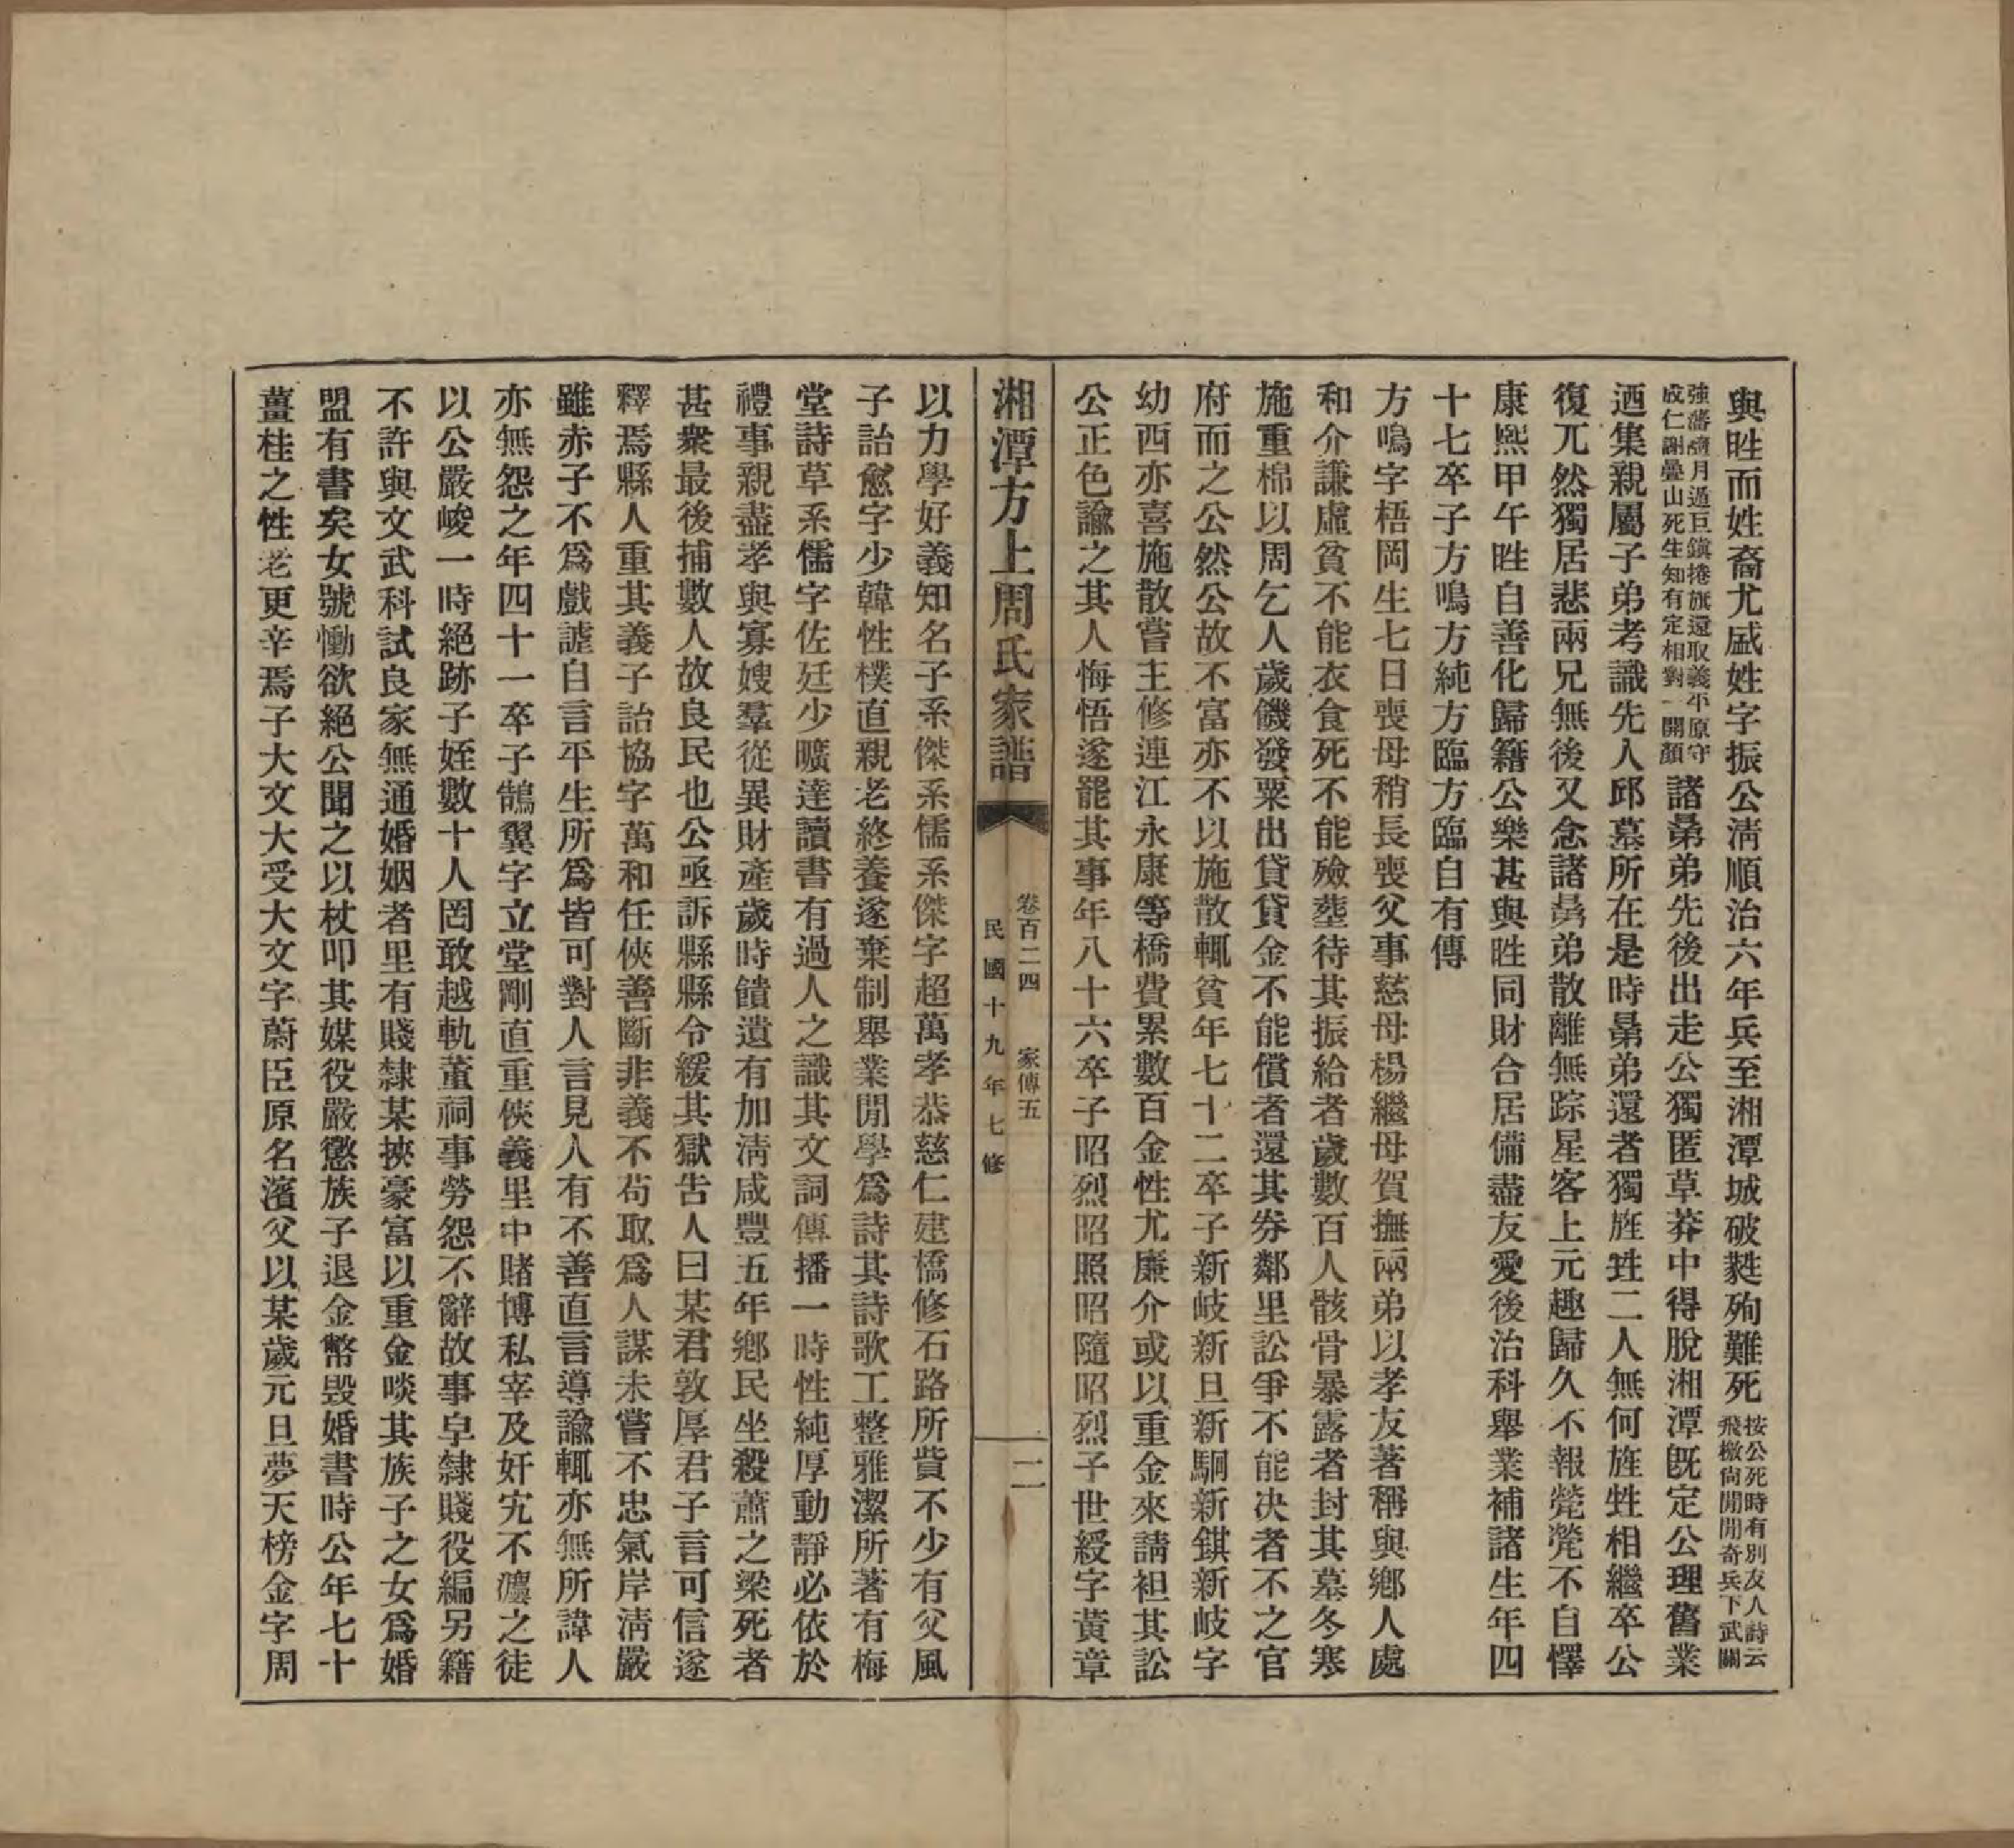 與甠而姓裔尤盛姓字振公淸順治六年兵至湘潭城破㲛殉難死按公死時有別友人詩云飛檄尙聞開奇兵下武關
強藩月過巨鎭捲旗還取義平原守成仁謝疊山死生知有定相對一開顏諸晜弟先後出走公獨匿草莽中得脫湘潭旣定公理舊業
迺集親屬子弟考識先人邱墓所在是時晜弟還者獨㽒甡二人無何㽒甡相繼卒公
復兀然獨居悲兩兄無後又念諸晜弟散離無踪星客上元趣歸久不報煢煢不自懌
康熙甲午甠自善化歸籍公樂甚與甠同財合居備盡友愛後治科舉業補諸生年四
十七卒子方鳴方純方臨方臨自有傳
方鳴字梧岡生七日喪母稍長喪父事慈母楊繼母賀撫兩弟以孝友著稱與鄕人處
和介謙虛貧不能衣食死不能殮塟待其振給者歲數百人骸骨暴露者封其墓冬寒
施重棉以周乞人歲饑發粟出貸貸金不能償者還其券鄰里訟爭不能決者不之官
府而之公然公故不富亦不以施散輒貧年七十二卒子新岐新旦新駉新錤新岐字
幼西亦喜施散嘗主修連江永康等橋費累數百金性尤廉介或以重金來請袒其訟
公正色諭之其人悔悟遂罷其事年八十六卒子昭烈昭照昭隨昭烈子世綬字黃章
湘潭方上周氏家譜　卷百二四　家傳五　民國十九年七修　二
以力學好義知名子系傑系儒系傑字超萬孝恭慈仁建橋修石路所貲不少有父風
子詒愈字少韓性樸直親老終養遂棄制舉業閒學爲詩其詩歌工整雅潔所著有梅
堂詩草系儒字佐廷少曠達讀書有過人之識其文詞傳播一時性純厚動靜必依於
禮事親盡孝與寡嫂羣從異財產歲時饋遺有加淸咸豐五年鄕民坐殺蕭之梁死者
甚衆最後捕數人故良民也公亟訴縣縣令緩其獄告人曰某君敦厚君子言可信遂
釋焉縣人重其義子詒協字萬和任俠善斷非義不苟取爲人謀未嘗不忠氣岸淸嚴
雖赤子不爲戲謔自言平生所爲皆可對人言見人有不善直言導諭輒亦無所諱人
亦無怨之年四十一卒子鵠翼字立堂剛直重俠義里中賭博私宰及奸宄不灋之徒
以公嚴峻一時絕跡子姪數十人罔敢越軌董祠事勞怨不辭故事皁隸賤役編另籍
不許與文武科試良家無通婚姻者里有賤隸某挾豪富以重金啖其族子之女爲婚
盟有書矣女號慟欲絕公聞之以杖叩其媒役嚴懲族子退金幣毀婚書時公年七十
薑桂之性老更辛焉子大文大受大文字蔚臣原名濱父以某歲元旦夢天榜金字周